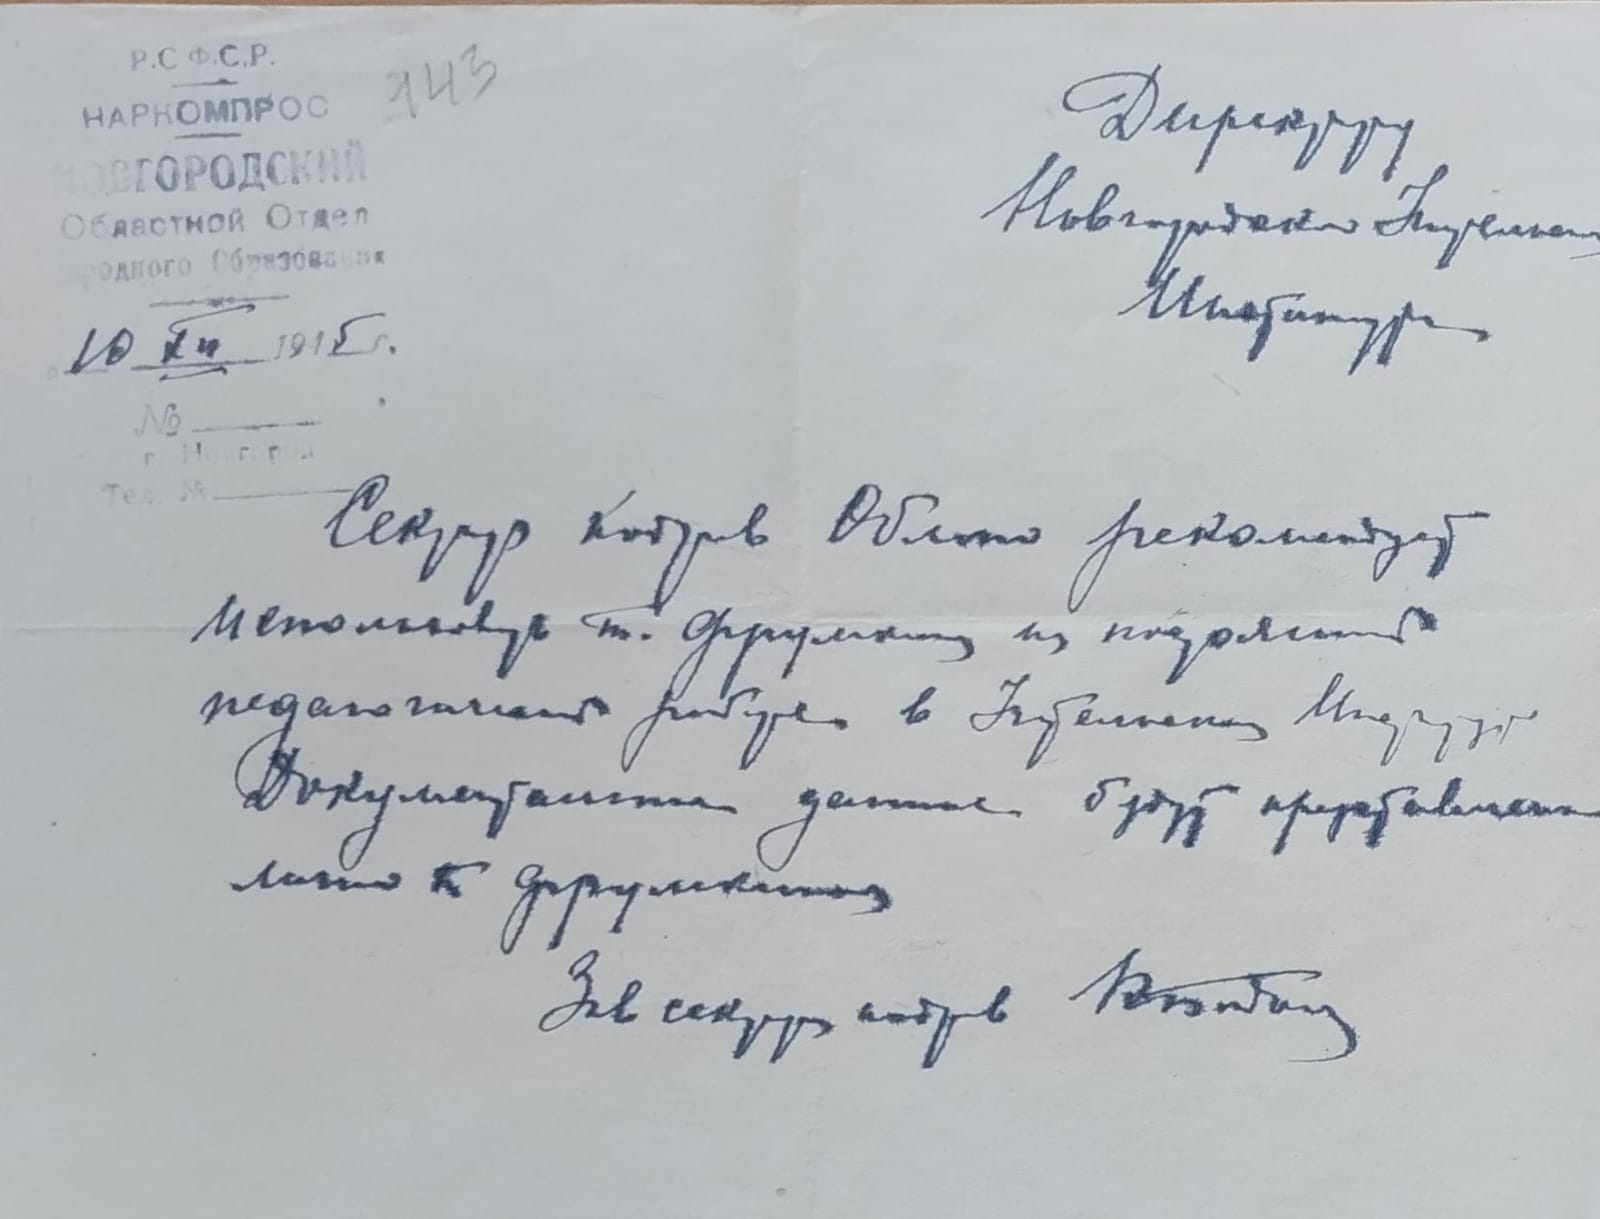 Р.С.Ф.С.Р.
НАРКОМПРОС
НОВГОРОДСКИЙ
Областной Отдел
Народного Образования
10 XII 1945 г.
№
г. Новгород
Тел. №
143
Директору
Новгородского Учительского
Института
Сектор кадров Облоно рекомендует
использовать т. Фрумкина на
педагогической работе в Учительском Институте
Документальные данные будут представлены
лично т Фрумкиным
Зав сектором кадров